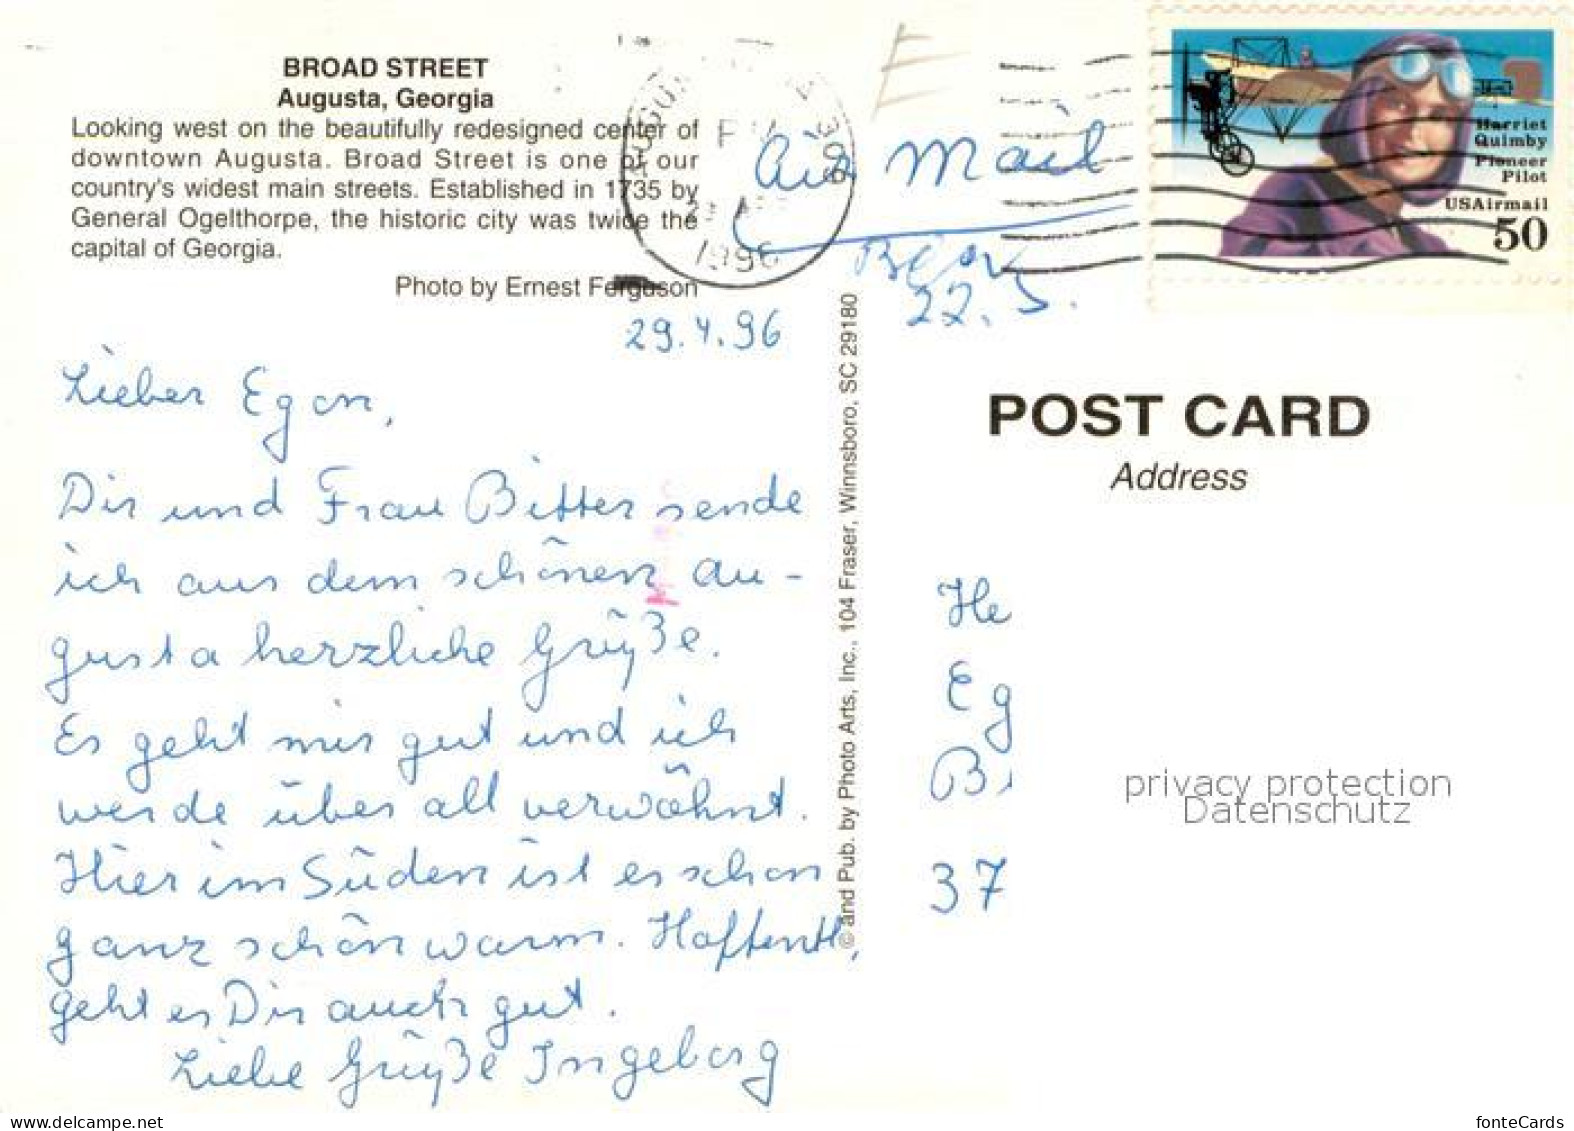 BROAD STREET
Augusta, Georgia
Looking west on the beautifully redesigned center of
downtown Augusta. Broad Street is one of our
country's widest main streets. Established in 1735 by
General Ogelthorpe, the historic city was twice the
capital of Georgia.
Photo by Ernest Ferguson
29.4.96
Lieber Egon,
Dir und Frau Bitter sende
ich aus dem schönen Au-
gusta herzliche Grüße.
Es geht mir gut und ich
werde über all verwöhnt.
Hier im Süden ist es schon
ganz schön warm. Hoffentl,
geht es Dir auch gut.
Liebe Grüße Ingeborg
© and Pub. by Photo Arts, Inc., 104 Fraser, Winnsboro, SC 29180
1996
Air Mail
22.5.
Harriet
Quimby
Pioneer
Pilot
USAirmail
50
POST CARD
Address
He
Eg
B
37
privacy protection
Datenschutz
www.delcampe.net
fonteCards